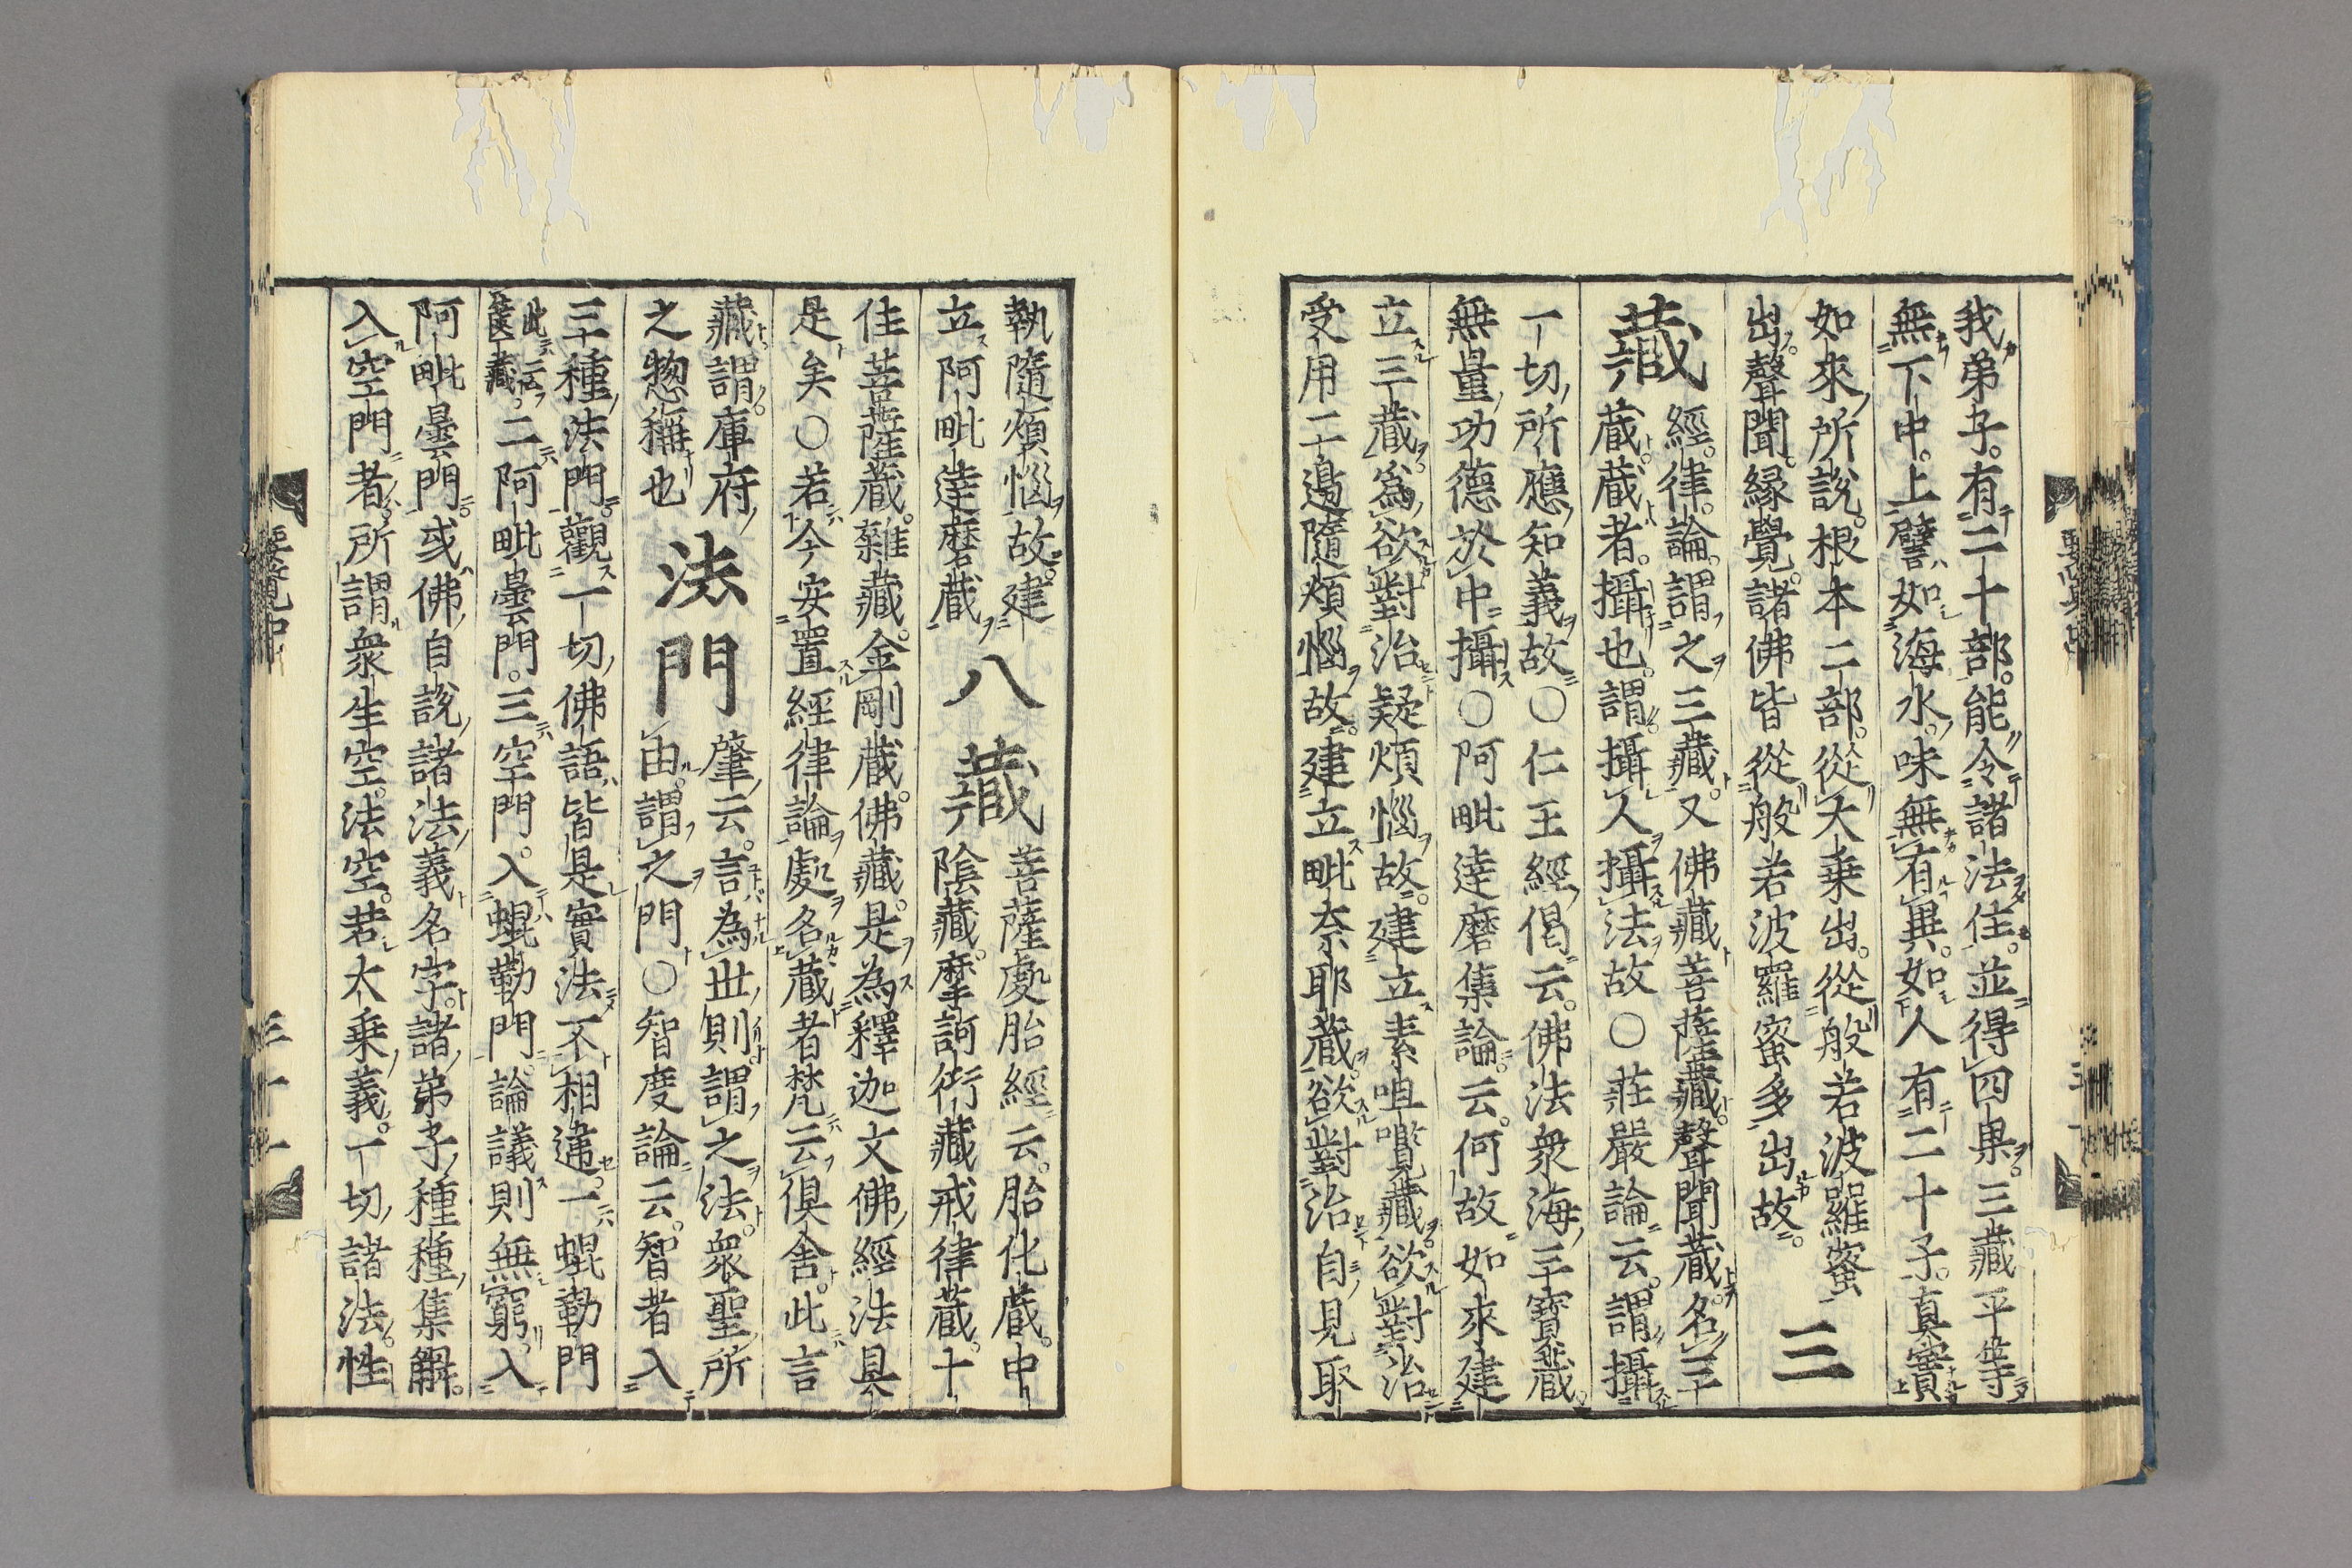 我弟子。有二十部。能令諸法住。並得四果。三藏平等
無下中。上譬如海水。味無有異。如人有二十子。真實
如來所說。根本二部。從大乗出。從般若波羅蜜
出。聲聞。縁覺。諸佛皆從般若波羅蜜多出故。 三
藏 經。律。論。謂之三藏。又佛藏菩薩藏。聲聞藏名三
藏。藏者。攝也。謂攝人攝法故○荘嚴論云。謂攝
一切所應知義故○仁王經偈云。佛法衆海三寶藏
無量功德於中攝○阿毗達磨集論云。何故如來建
立三藏。為欲對治疑煩惱故。建立素咀囕藏。欲對治
受用二邊隨煩惱故。建立毗奈耶藏。欲對治自見取
執隨煩惱故。建
立阿毗達磨藏 八藏 菩薩處胎經云。胎化藏。中
陰藏。摩訶衍藏戒律藏。十
住菩薩藏。雜藏。金剛藏。佛藏。是為釋迦文佛經法具
是矣○若今安置經律論處名藏者梵云俱舍。此言
藏。謂庫府
之惣稱也 法門 肇云。言為世則謂之法。衆聖所
由。謂之門○智度論云。智者入
三種法門。觀一切佛語皆是實法不相違。一蜫勒門
此云篋藏。二阿毗曇門。三空門。入蜫勒門。論議則無窮。入
阿毗曇門。或佛自說諸法義名字。諸弟子種種集解。
入空門者。所謂衆生空。法空。若大乗義。一切諸法。性
要覽中
三十一